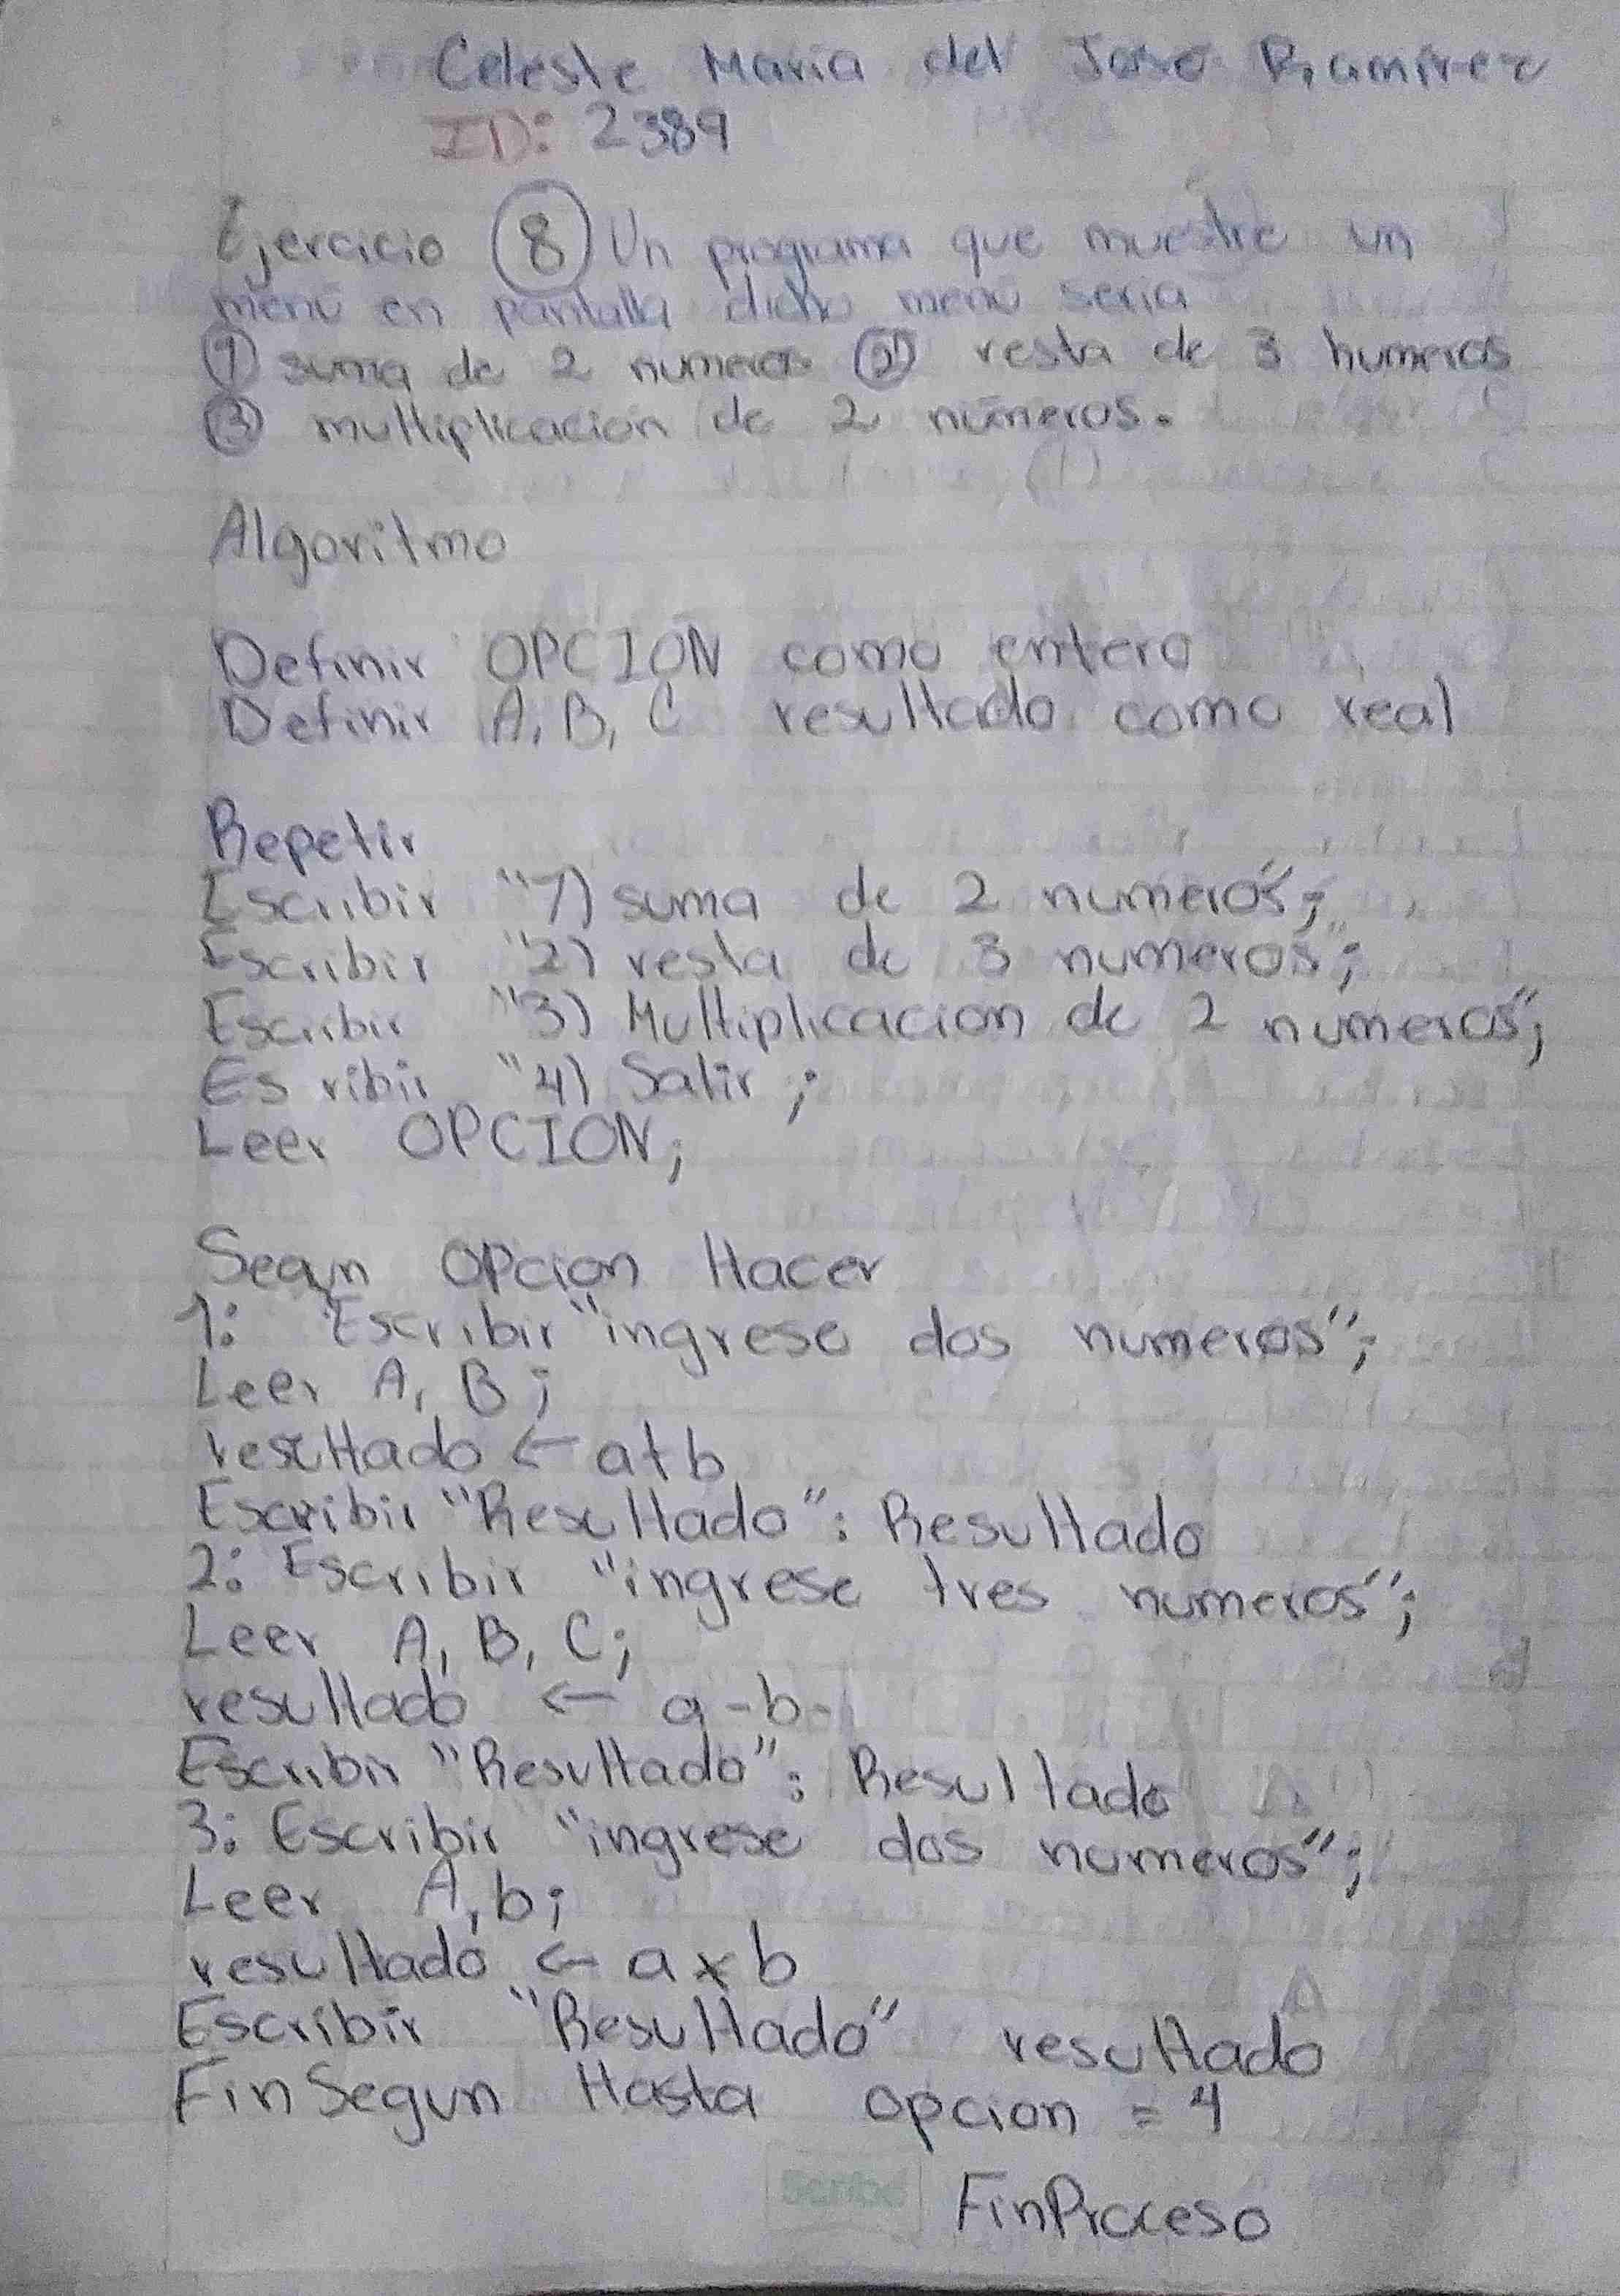 Celeste Maria del José Ramirez
ID: 2389
Ejercicio 8 Un programa que muestre un
menú en pantalla dicho menú seria
1 suma de 2 numeros 2 resta de 3 numeros
3 multiplicación de 2 números.
Algoritmo
Definir OPCION como entero
Definir A, B, C resultado como real
Repetir
Escribir "1) suma de 2 numeros";
Escribir "2) resta de 3 numeros";
Escribir "3) Multiplicacion de 2 numeros";
Es ribir "4) Salir ;
Leer OPCION;
Segun OPcion Hacer
1: Escribir "ingrese dos numeros";
Leer A, B;
resultado ← a+b
Escribir "Resultado": Resultado
2: Escribir "ingrese tres numeros";
Leer A, B, C;
resultado ← a-b-
Escribir "Resultado": Resultado
3: Escribir "ingrese dos numeros";
Leer A, b;
resultado ← a x b
Escribir "Resultado" resultado
FinSegun Hasta opcion = 4
Scribe
FinProceso